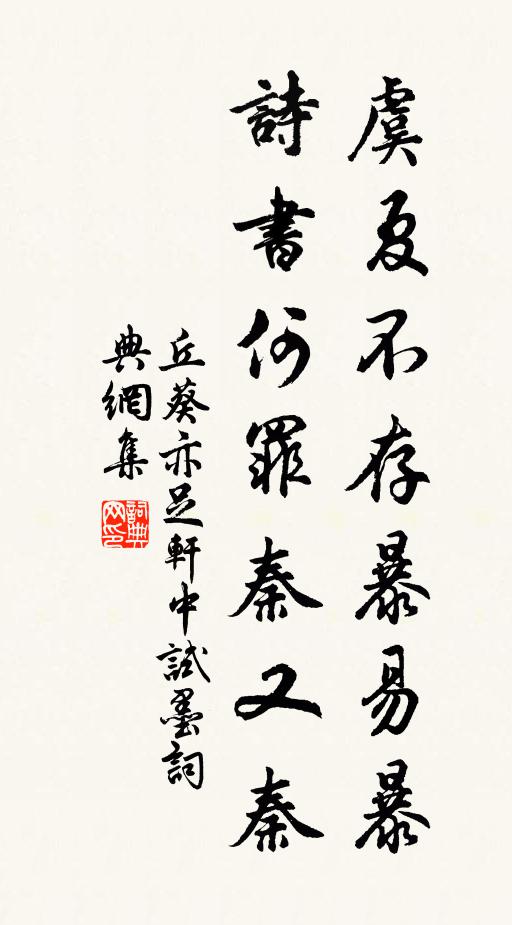 虞夏不存暴易暴
詩書何罪秦又秦
丘葵亦足軒中試墨詞
典網集
詞典
网印